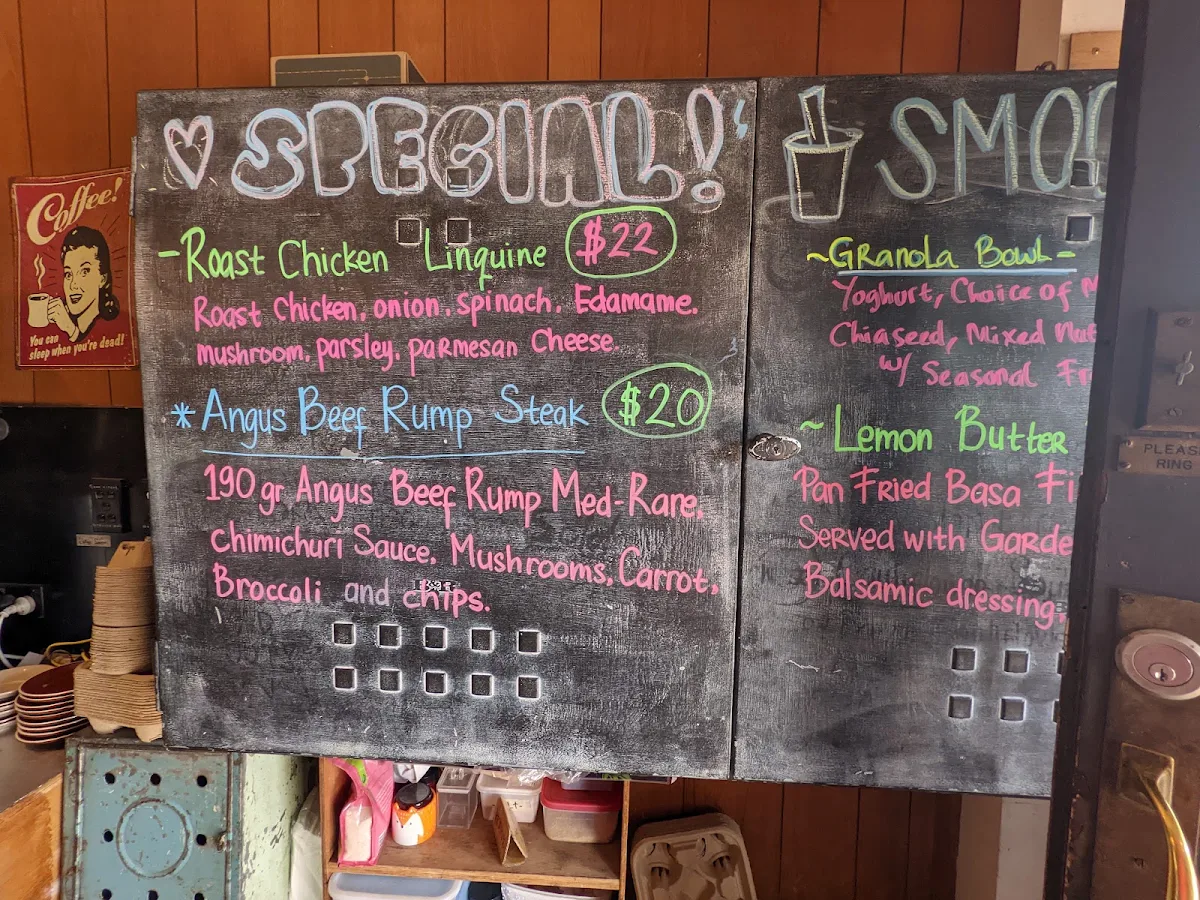 SPECIAL!
-Roast Chicken Linquine $22
Roast Chicken, onion, spinach, Edamame,
mushroom, parsley, parmesan Cheese.
* Angus Beef Rump Steak $20
190 gr Angus Beef Rump Med-Rare,
chimichuri Sauce, Mushrooms, Carrot,
Broccoli and chips.
SMO
~GRANOLA BOWL-
Yoghurt, Choice of M
Chiaseed, Mixed Nut
w/ Seasonal Fr
~ Lemon Butter
Pan Fried Basa Fi
Served with Garde
Balsamic dressing,
Coffee!
You can
sleep when you're dead!
PLEASE
RING